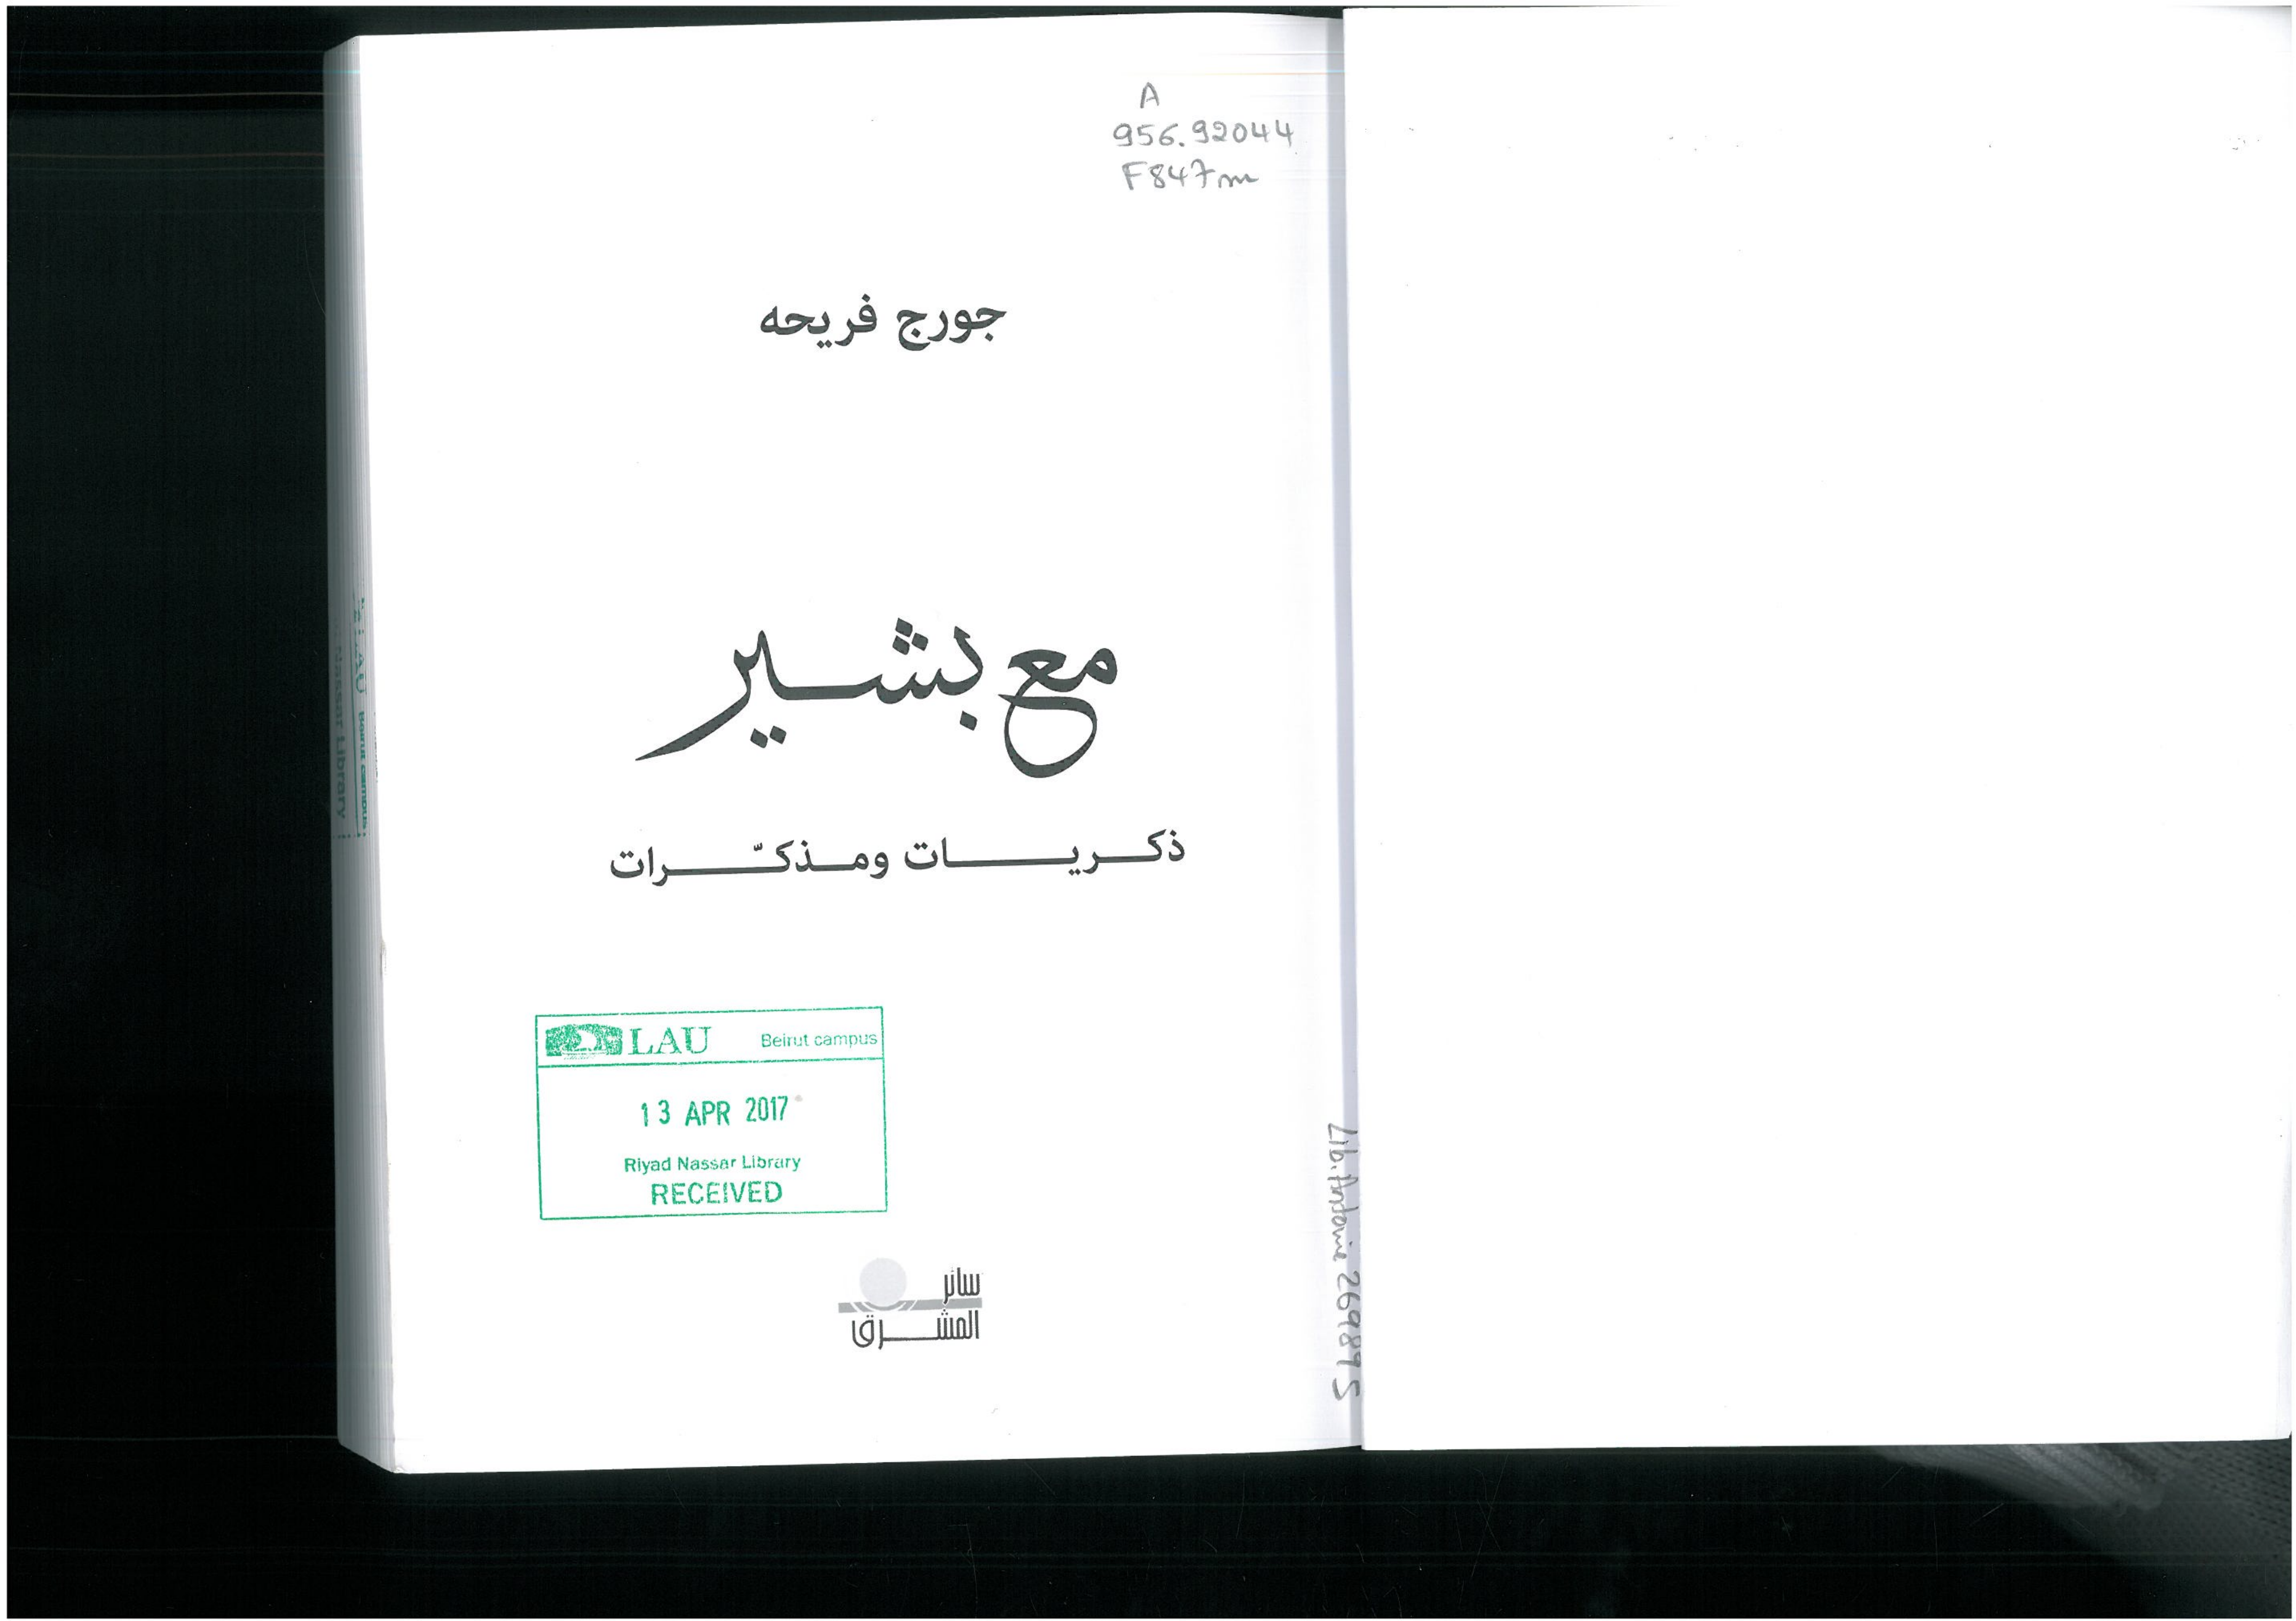 A
956.92044
F847m
جورج فريحه
مع بشير
ذكريات ومذكّرات
LAU Beirut campus
13 APR 2017
Riyad Nassar Library
RECEIVED
سائر
المشرق
Lib. Antoine 269895